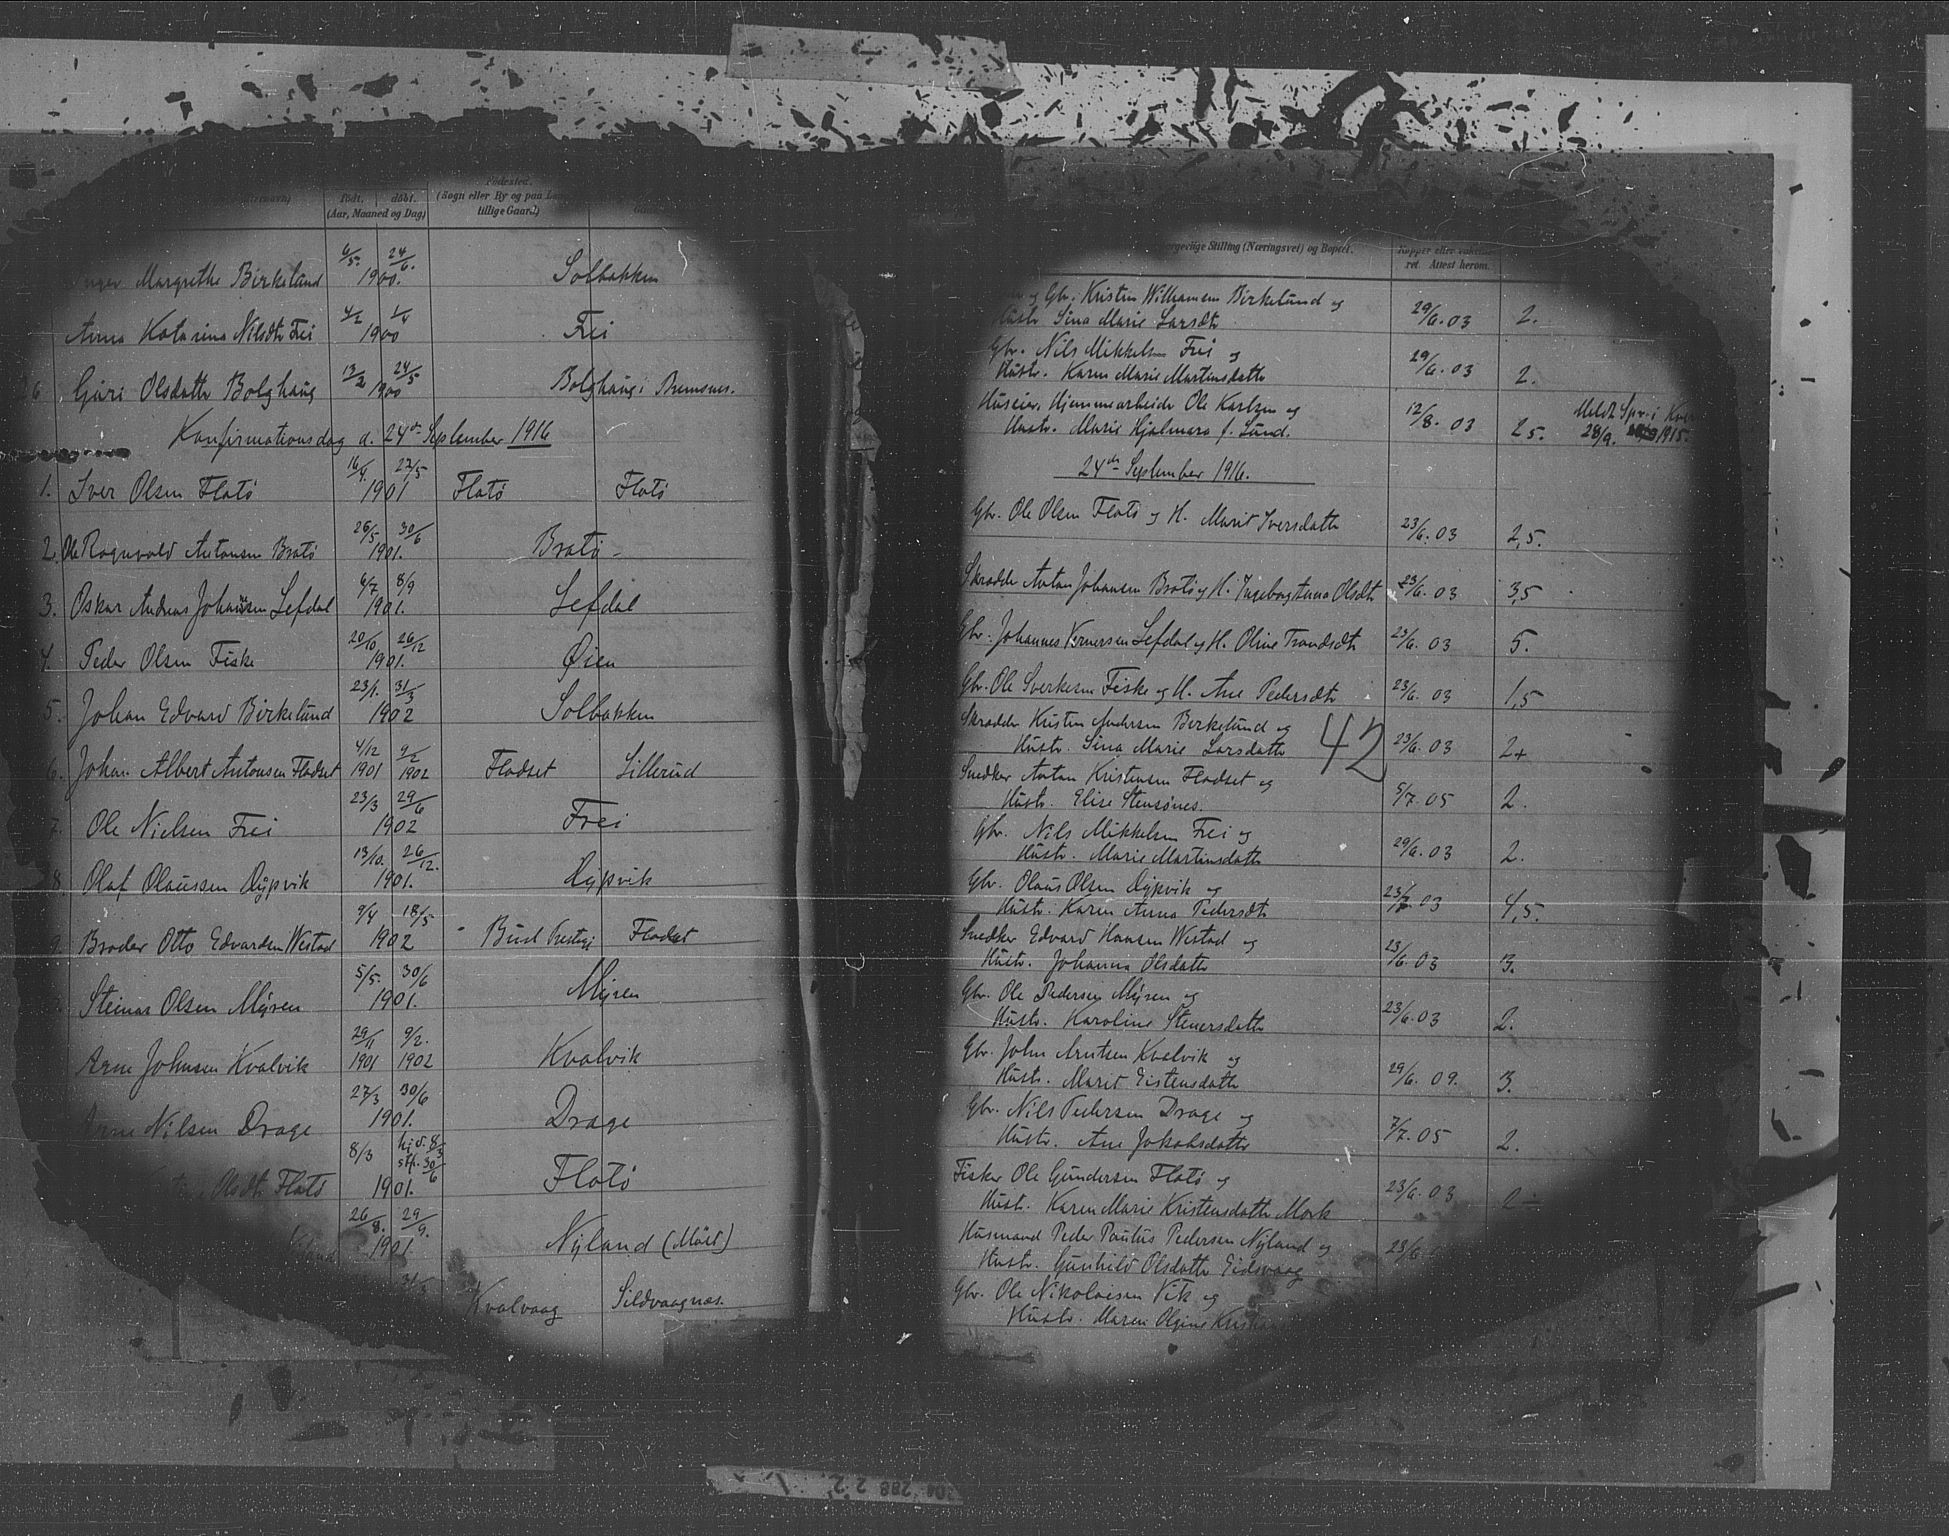 Fødested.
født. døbt. (Sogn eller By og paa
(Aar, Maaned og Dag) tillige Gaard)
Margrethe Birkelund 6/5. 24/6. 1900. Solbakken
Anna Katarina Nilsdtr Frei 4/2 1/4 1900 Frei
6 Guri Olsdatter Bolghaug 13/2 24/5 1900 Bolghaug i Bremsnes.
Konfirmationsdag d. 24de September 1916
1. Iver Olsen Flatø 16/4. 27/5 1901 Flatø Flatø
2. Ole Ragnvald Antonsen Bratø 26/5. 30/6 1901. Bratø
3. Oskar Andreas Johansen Sefdal 6/7 8/9 1901. Sefdal
4. Peder Olsen Fiske 20/10 26/12 1901. Øien
5. Johan Edvard Birkelund 23/1. 31/3 1902 Solbakken
6. Johan Albert Antonsen Fladset 4/12 1901 9/2 1902 Fladset Lillerud
7. Ole Nielsen Frei 23/3 29/6 1902 Frei
8. Olaf Olaussen Dypvik 13/10. 26/12. 1901. Dypvik
9. Broder Otto Edvardsen Westad 9/4 18/5 1902 Bud Fladset
Steinar Olsen Myren 5/5. 30/6 1901. Myren
Arne Johnsen Kvalvik 29/11 1901 9/2. 1902 Kvalvik
Nilsen Drage 27/3 30/6 1901. Drage
Olsdtr. Flatø 8/3 hjd. 8/3 stf. 30/6 1901. Flatø
26/8. 29/9. 1901. Nyland (Møst)
Kvalvaag Sildvaagnæs.
borgerlige Stilling (Næringsvei) og Bopæl. Kopper eller
ret. Attest herom.
og Gbr. Kristen Willumsen Birkelund og
Hustr. Sina Marie Larsdtr 29/6. 03 2.
Gbr. Nils Mikkelsen Frei og
Hustr. Karen Marie Martinsdatter 29/6. 03 2.
Huseier, Hjemmearbeider Ole Karlsen og
Hustr. Marie Hjalmara f. Lund. 12/8. 03 2,5. Meldt Spr. i
28/9. 1915.
24de September 1916.
Gbr. Ole Olsen Flatø og H. Marit Iversdatter 23/6. 03 2,5.
Skrædder Anton Johansen Bratø og H. Ingeborg Anna Olsdtr 23/6. 03 3,5
Gbr. Johannes Vernersen Sefdal og H. Oline Trondsdtr 23/6. 03 5.
Gbr. Ole Sverkesen Fiske og H. Ane Pedersdtr 23/6. 03 1,5
Skrædder Kristen Andersen Birkelund og
Hustr. Sina Marie Larsdatter 42 23/6. 03 2+
Snedker Anton Kristensen Fladset og
Hustr. Elise Stensønes. 5/7. 05 2.
Gbr. Nils Mikkelsen Frei og
Hustr. Marie Martinsdatter 29/6. 03 2.
Gbr. Olaus Olsen Dypvik og
Hustr. Karen Anna Pedersdtr 23/7. 03 4,5.
Snedker Edvard Hansen Westad og
Hustr. Johanna Olsdatter 23/6. 03 3.
Gbr. Ole Pedersen Myren og
Hustr. Karoline Stenersdatter 23/6. 03 2.
Gbr. John Arntsen Kvalvik og
Hustr. Marit Eistensdatter 29/6. 09. 3.
Gbr. Nils Pedersen Drage og
Hustr. Ane Jakobsdatter 7/7. 05 2.
Fisker Ole Gundersen Flatø og
Hustr. Karen Marie Kristensdatter Mork 23/6. 03 2
Husmand Peder Paulus Pedersen Nyland og
Hustr. Gunhild Olsdatter Eidsvaag 23/6
Gbr. Ole Nikolaisen Vik og
Hustr. Maren Olgine